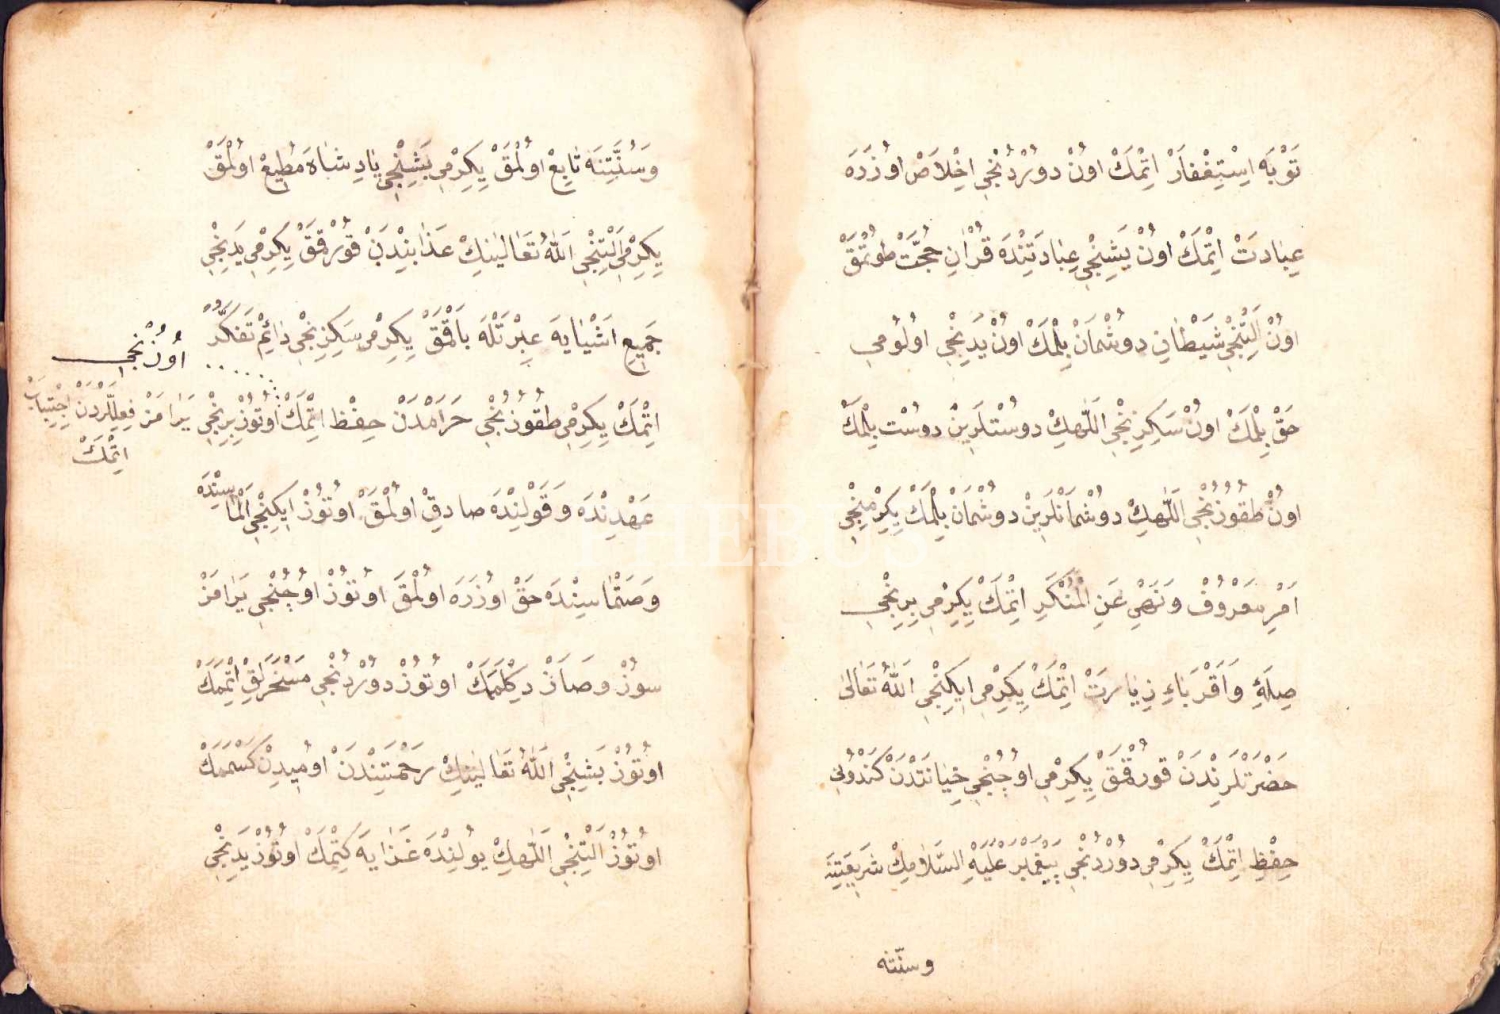 تَوْبَه اِسْتِغْفَارْ اِتْمَكْ اونْ دوُرْدُنْجِي اِخْلَاصْ اوُزَرَه
عِبَادَتْ اِتْمَكْ اوُنْ بَشِنْجِي عِبَادَتِنْدَه قُرْاٰنِ حُجَّتْ طوُتْمَقْ
اوُنْ اَلْتِنْجِي شَيْطَانِ دوُشْمَانْ بِلْمَكْ اوُنْ يَدِنْجِي اوُلوُمِي
حَقْ بِلْمَكْ اوُنْ سَكِزِنْجِي اَللّٰهِكْ دوُسْتْلَرِينْ دوُسْت بِلْمَكْ
اوُنْ طُقُوزُنْجِي اَللّٰهِكْ دوُشْمَانْلَرِينْ دوُشْمَانْ بِلْمَكْ يِكِرْمِنْجِي
اَمْرِ مَعْرُوفْ وَنَهْيِ عَنِ الْمُنْكَرِ اِتْمَكْ يِكِرْمِي بِرِنْجِي
صِلَۀِ وَاَقْرَبَاءِ زِيَارَتْ اِتْمَكْ يِكِرْمِي اِيكِنْجِي اَللّٰهُ تَعَالٰى
حَضْرَتْلَرِنْدَنْ قورْقْمَقْ يِكِرْمِي اوُچُنْجِي خِيَانَتْدَنْ كَنْدوُيِي
حِفْظِ اِتْمَكْ يِكِرْمِي دوُرْدُنْجِي پَيْغَمْبَرْ عَلَيْهِ السَّلَامِكْ شَرِيعَتِنَه
وسنّتنه
وَسُنَّتِنَه تَابِعْ اوُلْمَقْ يِكِرْمِي بَشِنْجِي پَادِشَاهَ مُطِيعْ اوُلْمَقْ
يِكِرْمِي اَلْتِنْجِي اَللّٰهُ تَعَالَينِكْ عَذَابِنْدَنْ قوُرْقْمَقْ يِكِرْمِي يَدِنْجِي
جَمِيعِ اَشْيَايَه عِبْرَتْلَه بَاقْمَقْ يِكِرْمِي سَكِزِنْجِي دَائِمْ تَفَكُّرْ
اِتْمَكْ يِكِرْمِي طُقُوزُنْجِي حَرَامْدَنْ حِفْظ اِتْمَكْ اوُتُوزْ بِرِنْجِي يَرَامَزْ فِعِلْلَرْدَنْ اِجْتِنَابْ
اِتْمَكْ
اوُتُوزُنْجِي
عَهْدِنْدَه وَقَوْلِنْدَه صَادِقْ اوُلْمَقْ اوُتُوزْ اِيكِنْجِي اَلْمَاسِنْدَه
وَصَتْمَاسِنْدَه حَقْ اوُزَرَه اوُلْمَقْ اوُتُوزْ اوُچُنْجِي يَرَامَزْ
سوُزْ وصَاوْ دِكْلَمَمَكْ اوُتُوزْ دوُرْدُنْجِي مَسْخَرَلِقْ اِتْمَمَكْ
اوُتُوزْ بَشِنْجِي اَللّٰهُ تَعَالَينِكْ رَحْمَتِنْدَنْ اوُمِيدِنْ كَسْمَمَكْ
اوُتُوزْ اَلْتِنْجِي اَللّٰهِكْ يوُلِنْدَه غَزَايَه كِتْمَكْ اوُتُوزْ يَدِنْجِي
PHEBUS